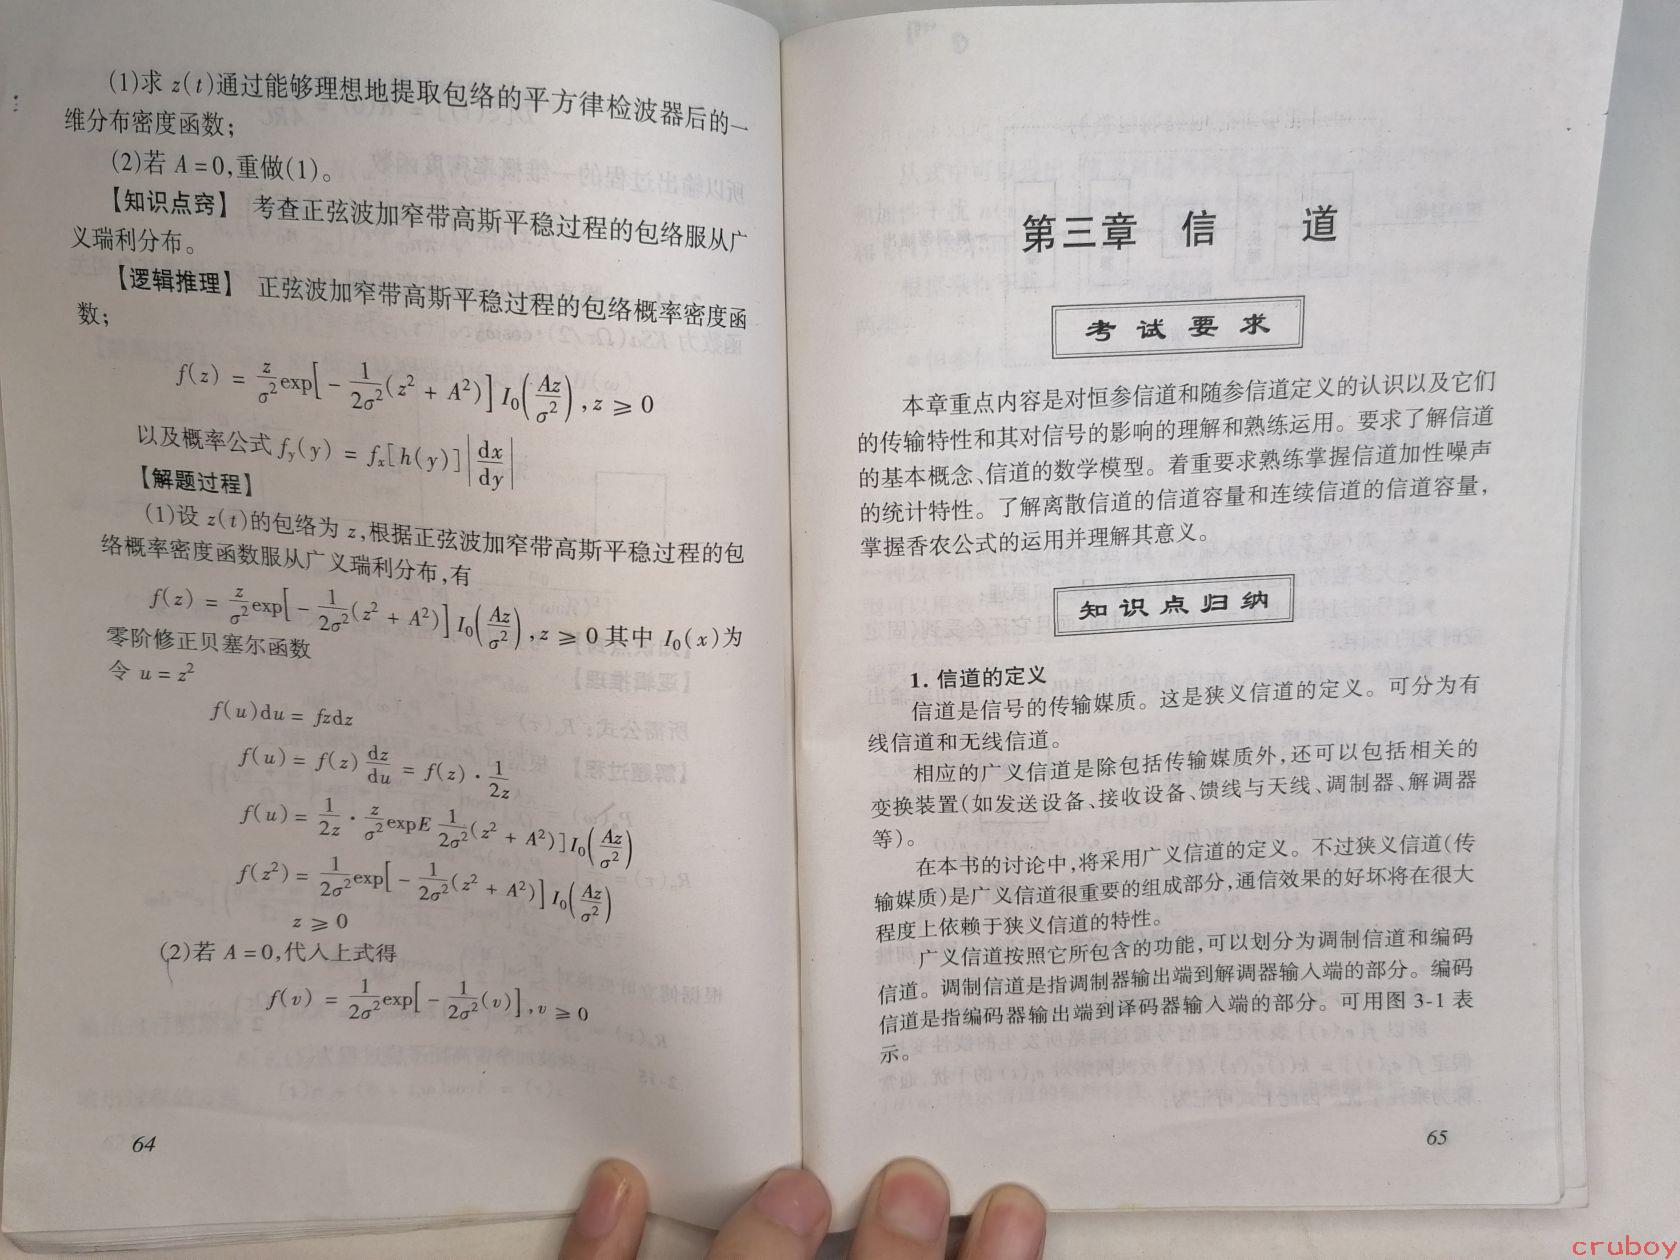 (1)求 z(t)通过能够理想地提取包络的平方律检波器后的一
维分布密度函数;
(2)若 A=0,重做(1)。
【知识点窍】 考查正弦波加窄带高斯平稳过程的包络服从广
义瑞利分布。
【逻辑推理】 正弦波加窄带高斯平稳过程的包络概率密度函
数;
f(z) = z/σ² exp[ - 1/2σ² (z² + A²)] I₀(Az/σ²), z ⩾ 0
以及概率公式 f_y(y) = f_x[h(y)]|dx/dy|
【解题过程】
(1)设 z(t)的包络为 z,根据正弦波加窄带高斯平稳过程的包
络概率密度函数服从广义瑞利分布,有
f(z) = z/σ² exp[ - 1/2σ² (z² + A²)] I₀(Az/σ²), z ⩾ 0 其中 I₀(x)为
零阶修正贝塞尔函数
令 u = z²
f(u)du = fzdz
f(u) = f(z) dz/du = f(z) · 1/2z
f(u) = 1/2z · z/σ² expE 1/2σ² (z² + A²)] I₀(Az/σ²)
f(z²) = 1/2σ² exp[ - 1/2σ² (z² + A²)] I₀(Az/σ²)
z ⩾ 0
(2)若 A=0,代入上式得
f(v) = 1/2σ² exp[ - 1/2σ² (v)], v ⩾ 0
64
第三章 信 道
考试要求
本章重点内容是对恒参信道和随参信道定义的认识以及它们
的传输特性和其对信号的影响的理解和熟练运用。要求了解信道
的基本概念、信道的数学模型。着重要求熟练掌握信道加性噪声
的统计特性。了解离散信道的信道容量和连续信道的信道容量,
掌握香农公式的运用并理解其意义。
知识点归纳
1. 信道的定义
信道是信号的传输媒质。这是狭义信道的定义。可分为有
线信道和无线信道。
相应的广义信道是除包括传输媒质外,还可以包括相关的
变换装置(如发送设备、接收设备、馈线与天线、调制器、解调器
等)。
在本书的讨论中,将采用广义信道的定义。不过狭义信道(传
输媒质)是广义信道很重要的组成部分,通信效果的好坏将在很大
程度上依赖于狭义信道的特性。
广义信道按照它所包含的功能,可以划分为调制信道和编码
信道。调制信道是指调制器输出端到解调器输入端的部分。编码
信道是指编码器输出端到译码器输入端的部分。可用图 3-1 表
示。
65
cruboy